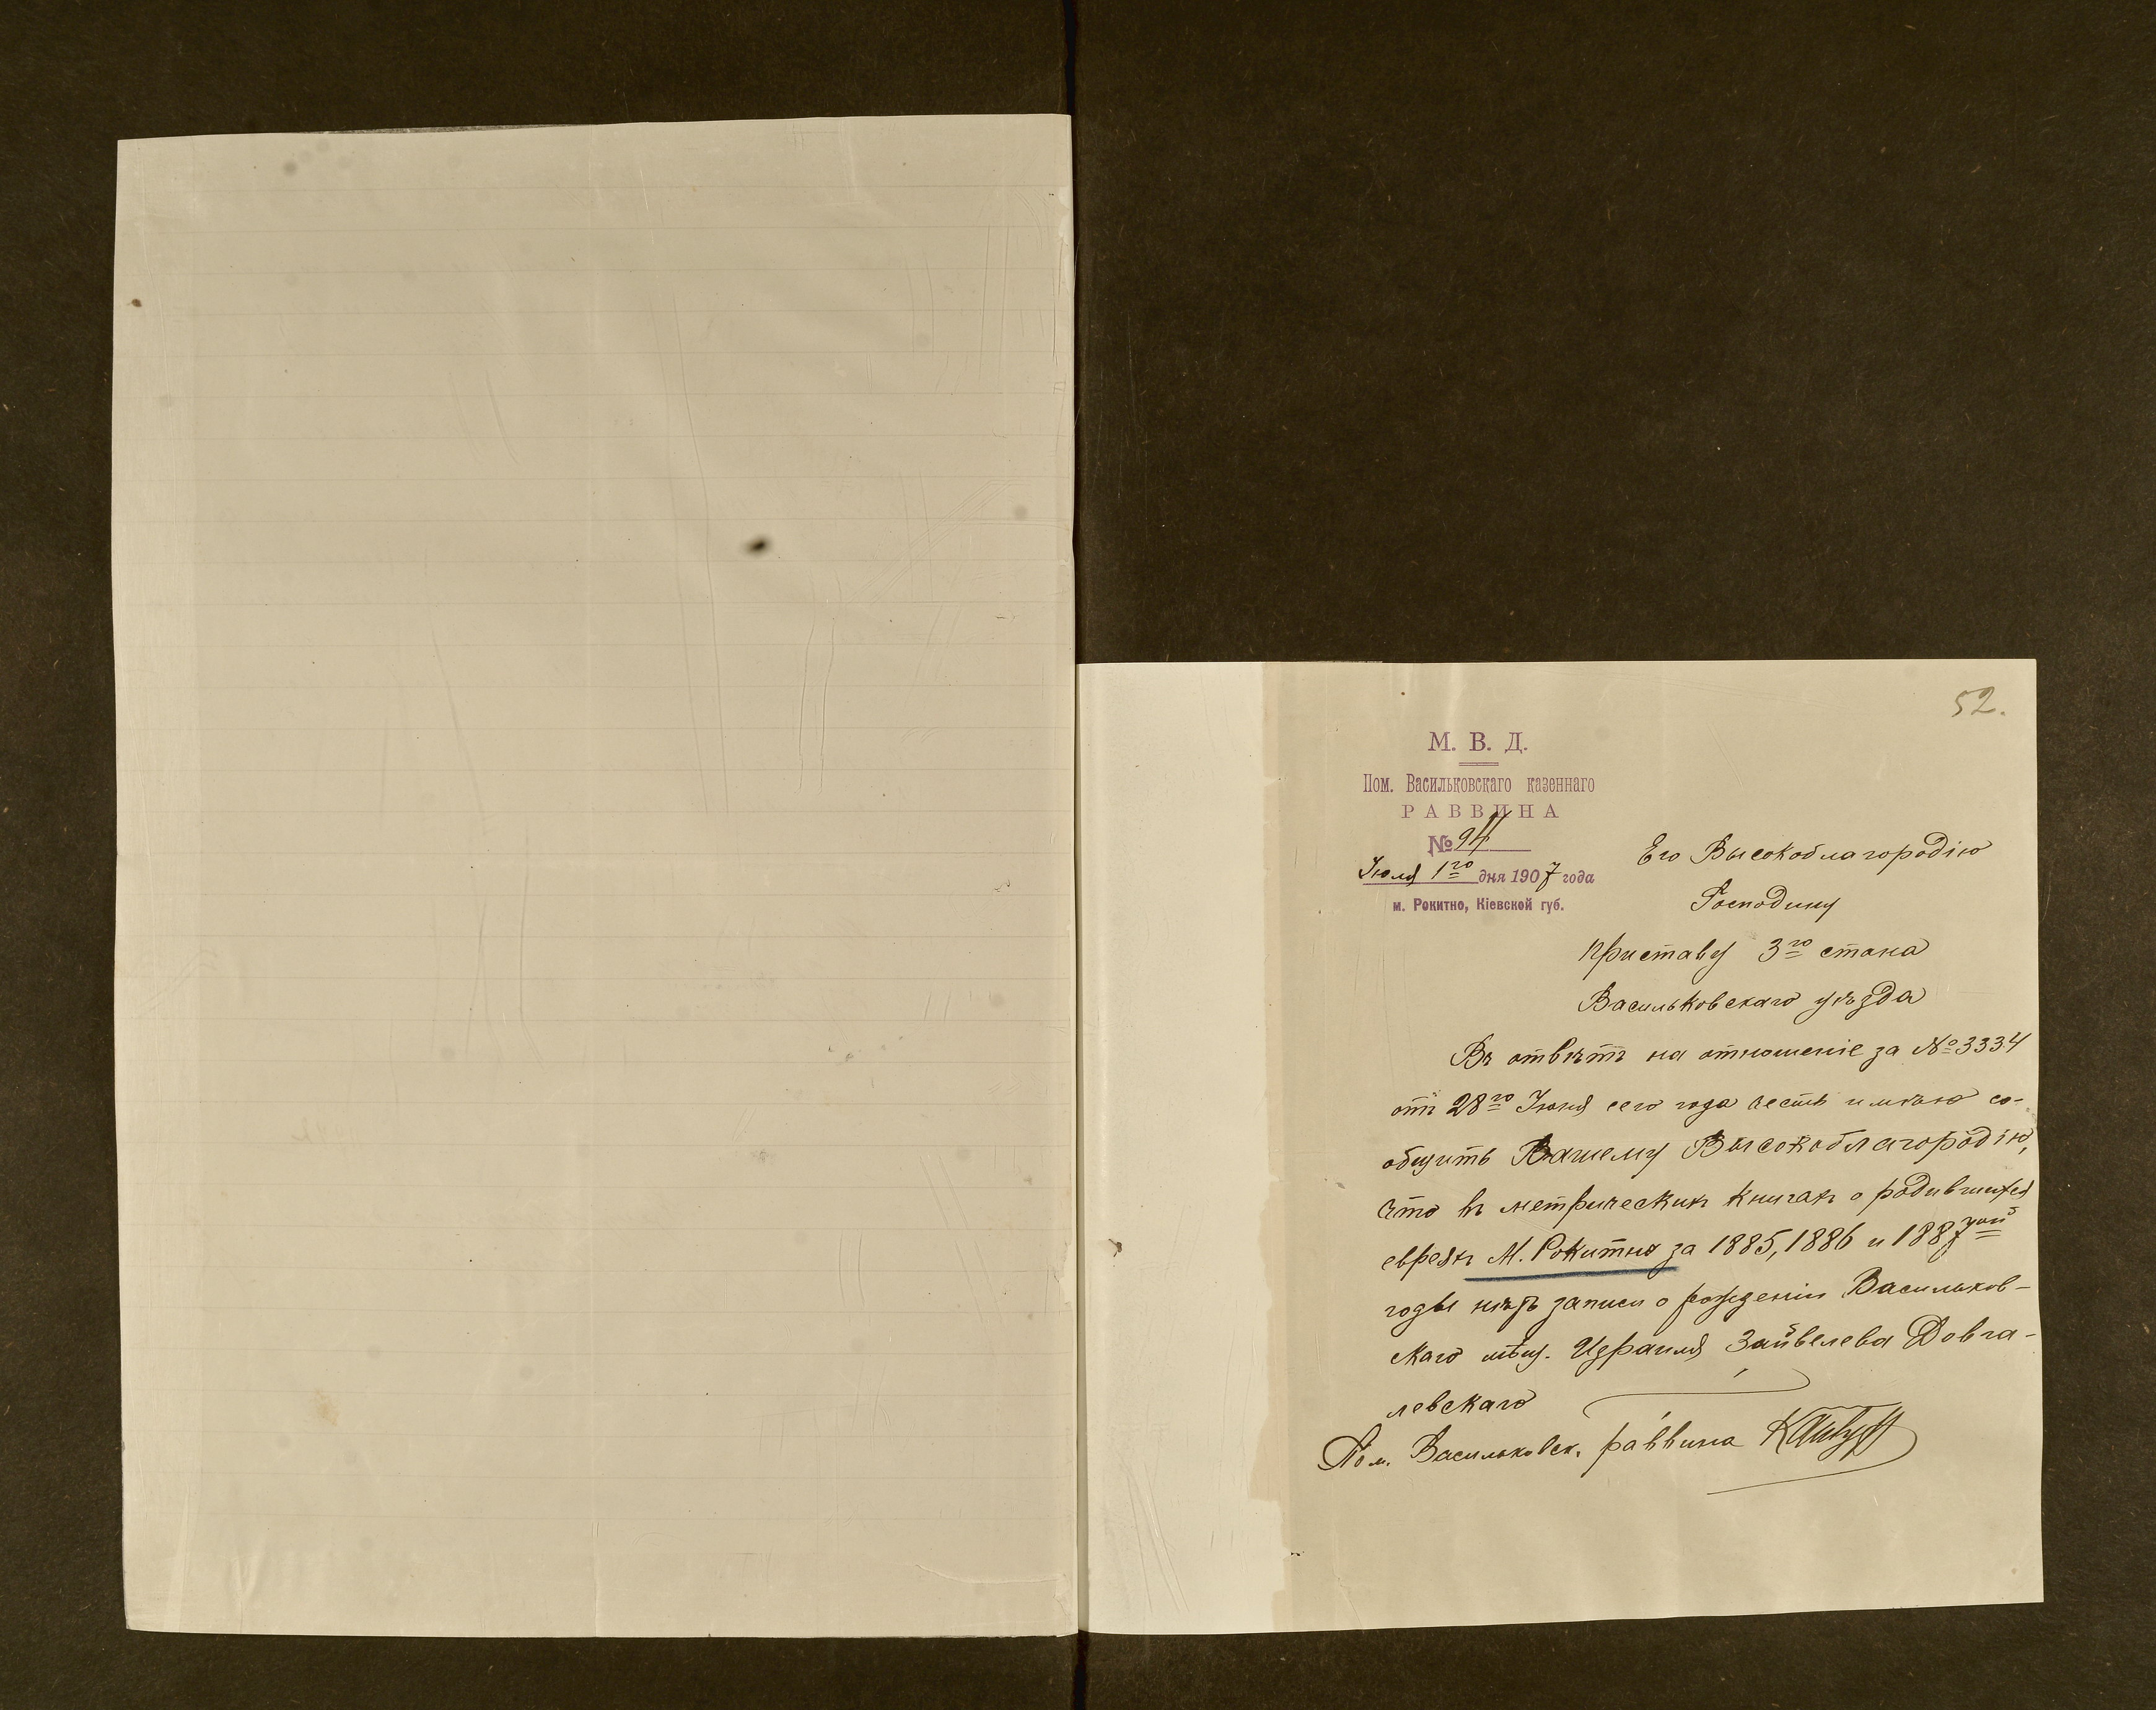 52.
М. В. Д.
Пом. Васильковскаго казеннаго
РАВВИНА
№ 94
Іюля 1го дня 1907 года
м. Рокитно, Кіевской губ.
Его Высокоблагородію
Господину
Приставу 3го стана
Васильковскаго уѣзда
Въ отвѣтъ на отношеніе за № 3334
отъ 28го Іюня сего года честь имѣю со-
общить Вашему Высокоблагородію,
что въ метрическихъ книгахъ о родившихся
евреяхъ М. Рокитно за 1885, 1886 и 1887
годы нѣтъ записи о рожденіи Васильков-
скаго мѣщ. Израиля Зайвелева Довга-
левскаго
Пом. Васильковск. раввина